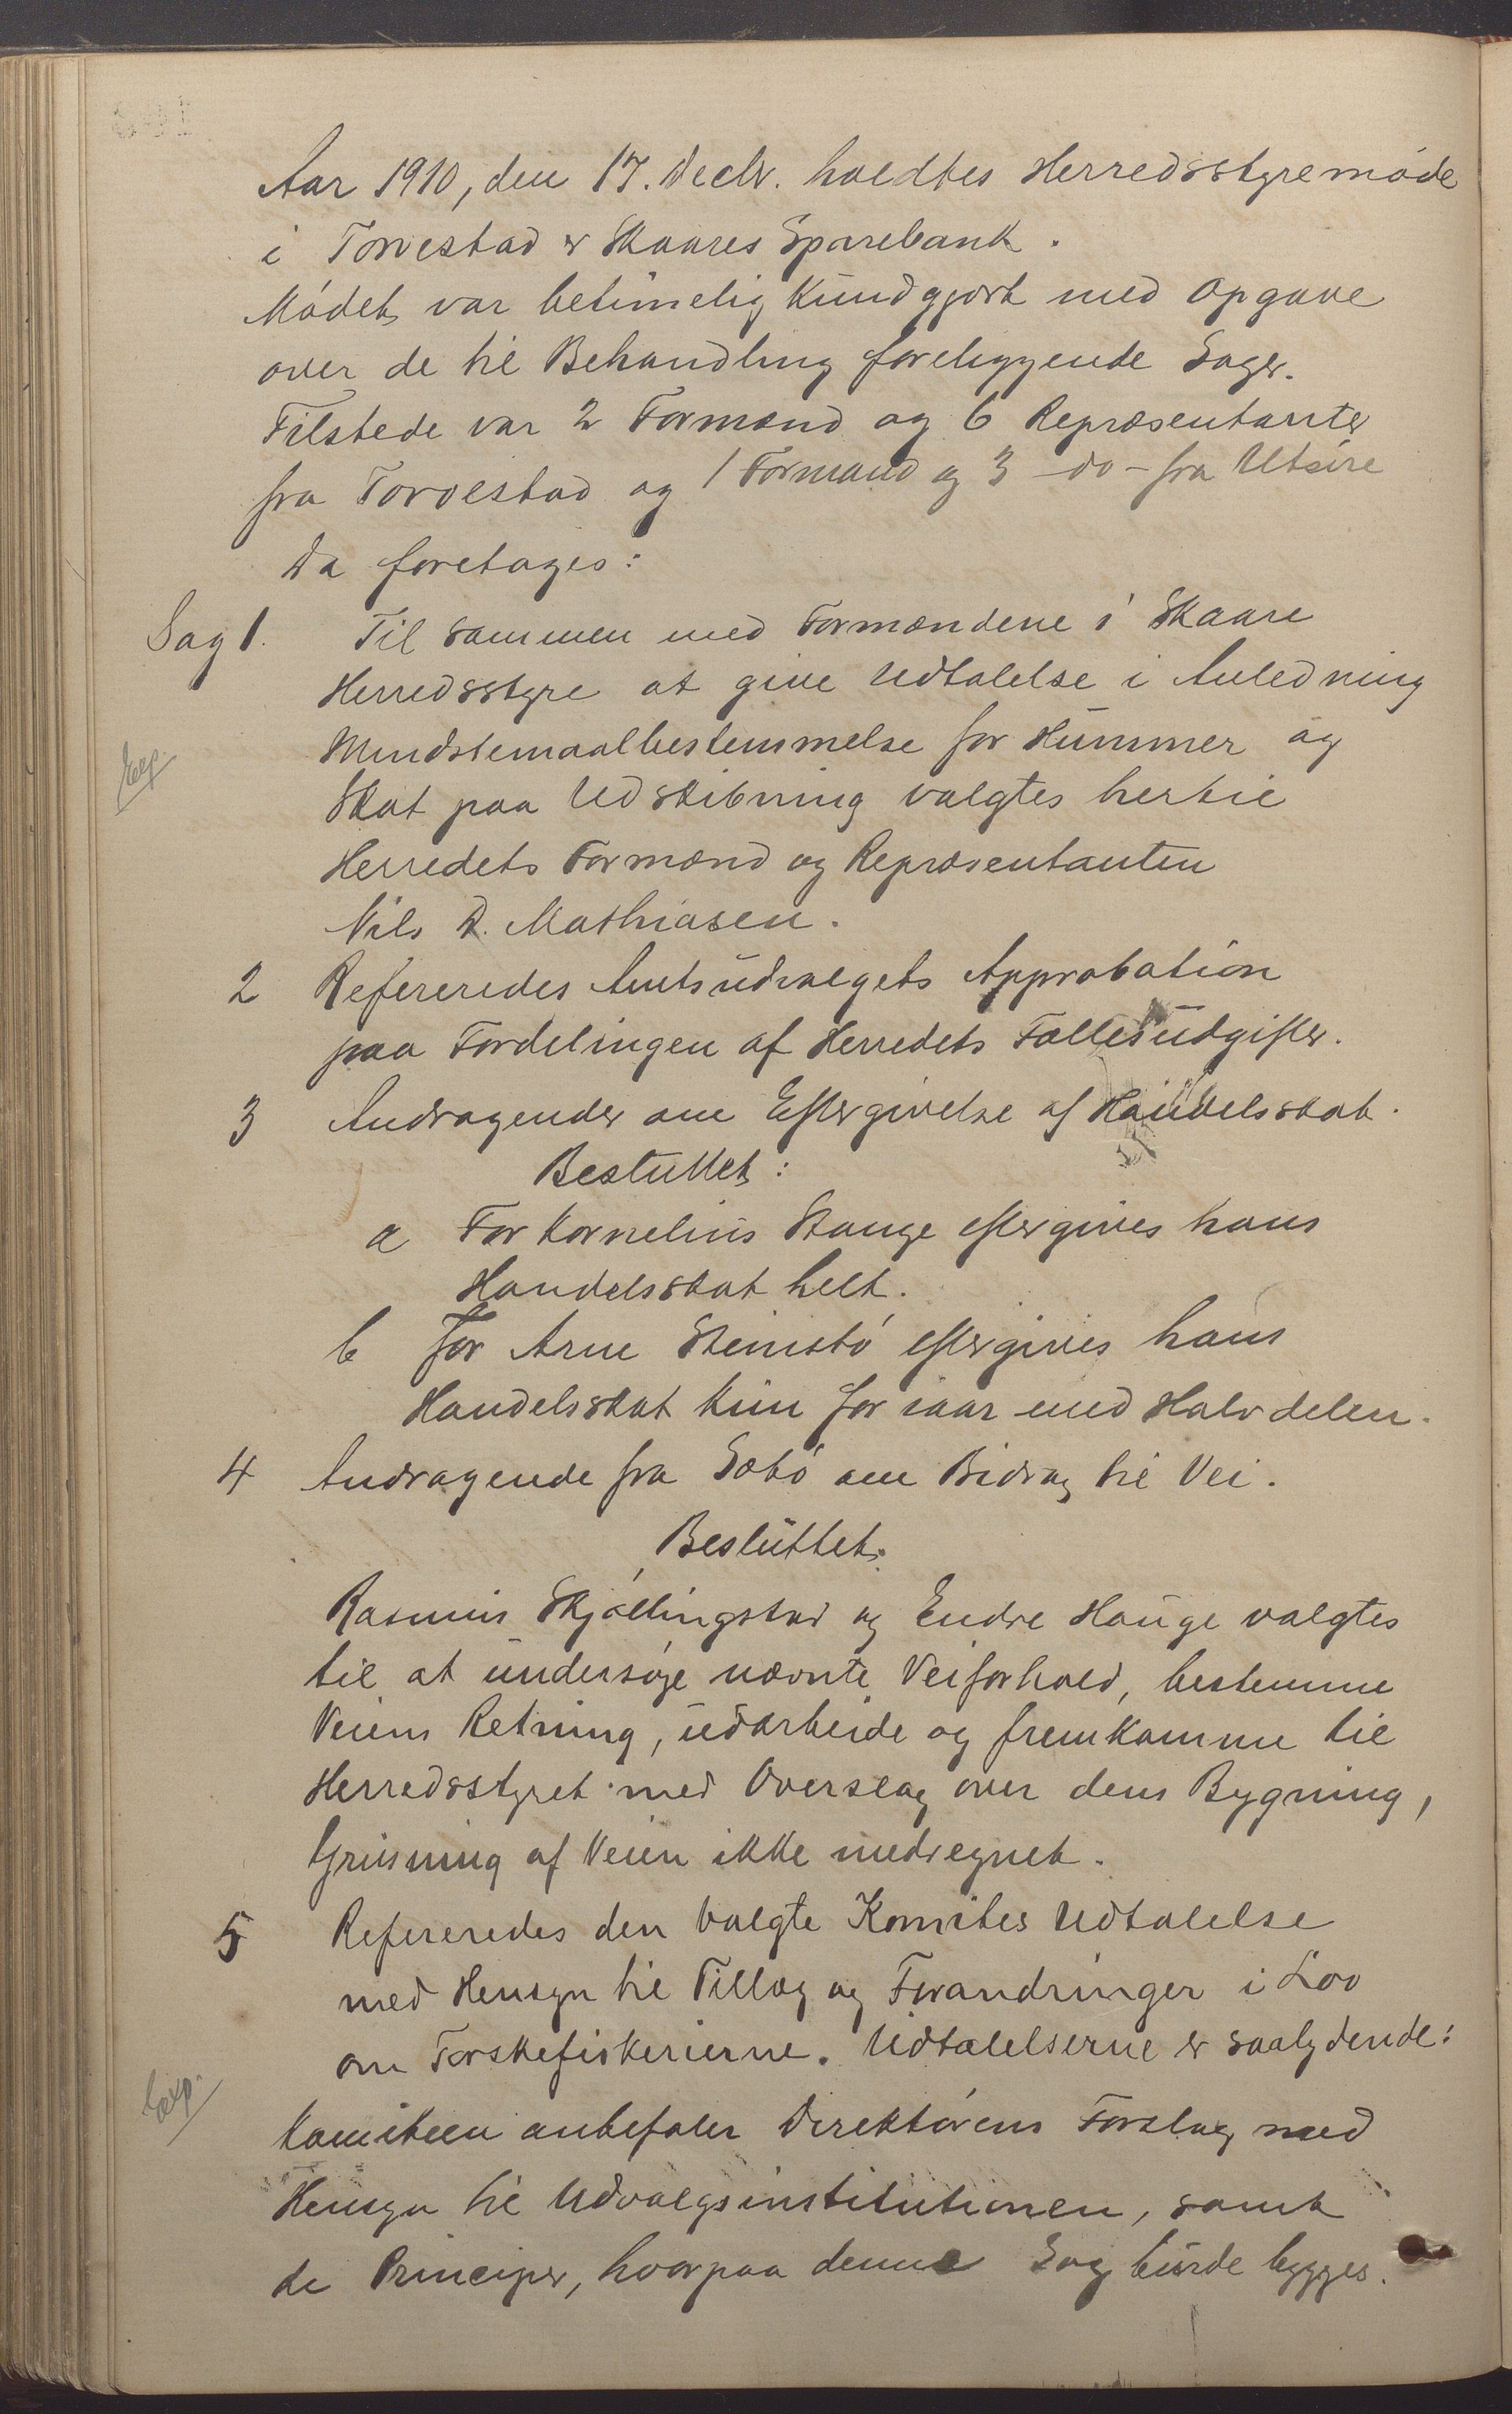 Aar 1910, den 17. Decbr. holdtes Herredsstyremøde
i Torvestad & Skaares Sparebank.
Mødet var betimelig kundgjort med Opgave
over de til Behandling foreliggende Sager.
Tilstede var 2 Formænd og 6 Repræsentanter
fra Torvestad og 1 Formand og 3 -do- fra Utsire
Da foretages:
Sag 1. Til sammen med Formændene i Skaare
Herredsstyre at give Udtalelse i Anledning
Mindstemaalbestemmelse for Hummer og
Exp.
Skat paa Udskibning valgtes hertil
Herredets Formænd og Repræsentanten
Nils D. Mathiasen.
2 Refereredes Amtsudvalgets Approbation
paa Fordelingen af Herredets Fællesudgifter.
3 Andragender om Eftergivelse af Handelsskat.
Besluttet:
a For Kornelius Stange eftergives hans
Handelsskat helt.
b For Arne Steinsbø eftergives hans
Handelsskat kun for iaar med Halvdelen.
4 Andragende fra Sæbø om Bidrag til Vei.
Besluttet.
Rasmus Skjøllingstad og Endre Hauge valgtes
til at undersøge nævnte Veiforhold, bestemme
Veiens Retning, udarbeide og fremkomme til
Herredsstyret med Overslag over dens Bygning,
Grusning af Veien ikke medregnet.
5 Refereredes den valgte Komites Udtalelse
med Hensyn til Tillæg og Forandringer i Lov
om Torskefiskerierne. Udtalelserne er saalydende:
Exp.
Komiteen anbefaler Direktørens Forslag med
Hensyn til Udvalgsinstitutionen, samt
de Principer, hvorpaa denne Sag burde bygges.